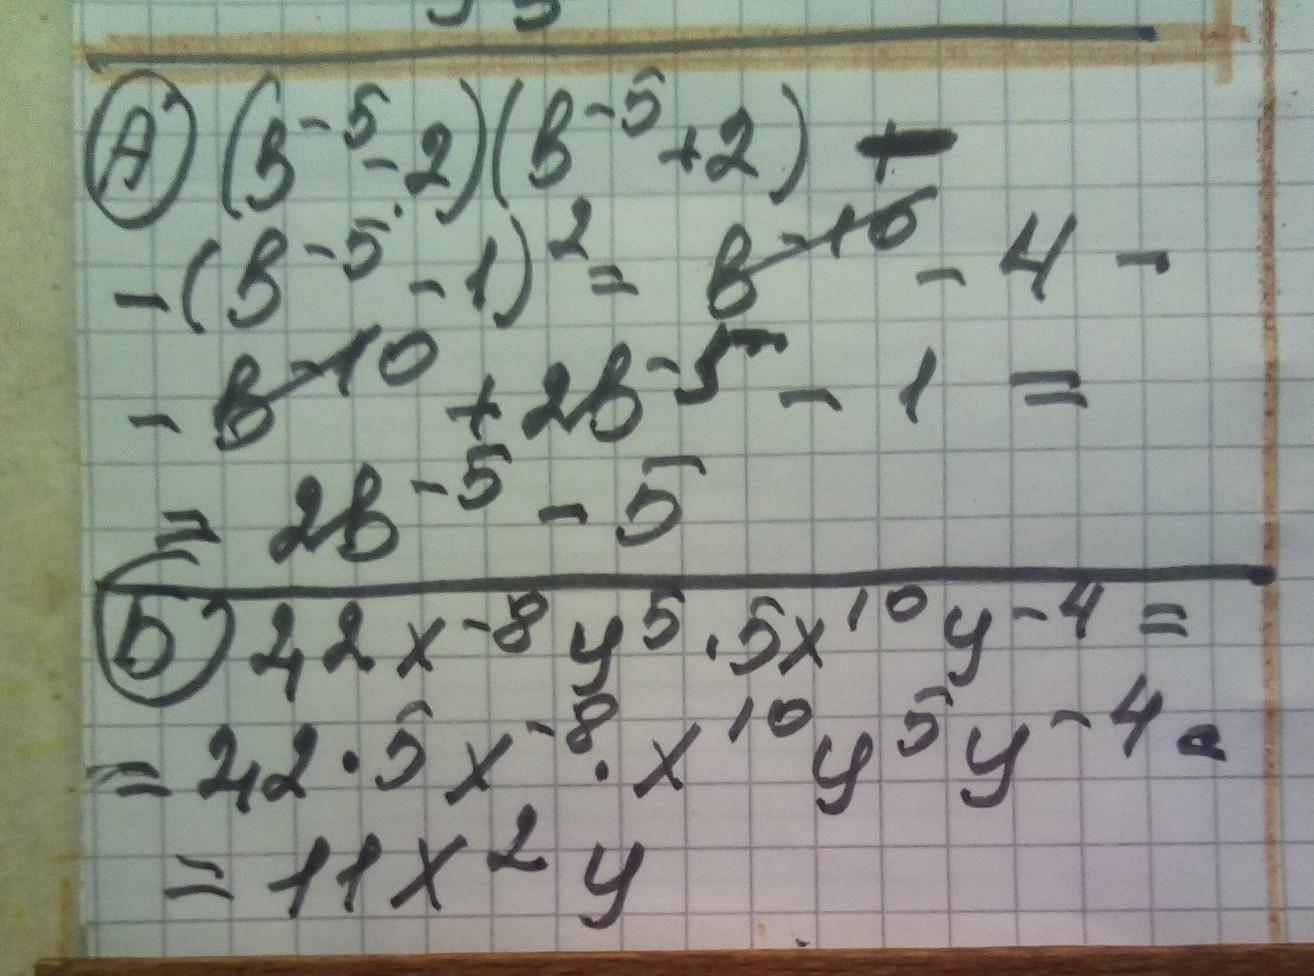 А) (b⁻⁵ - 2)(b⁻⁵ + 2) -
- (b⁻⁵ - 1)² = b⁻¹⁰ - 4 -
- b⁻¹⁰ + 2b⁻⁵ - 1 =
= 2b⁻⁵ - 5
Б) 2,2x⁻⁸y⁵ · 5x¹⁰y⁻⁴ =
= 2,2 · 5x⁻⁸ · x¹⁰y⁵y⁻⁴ =
= 11x²y